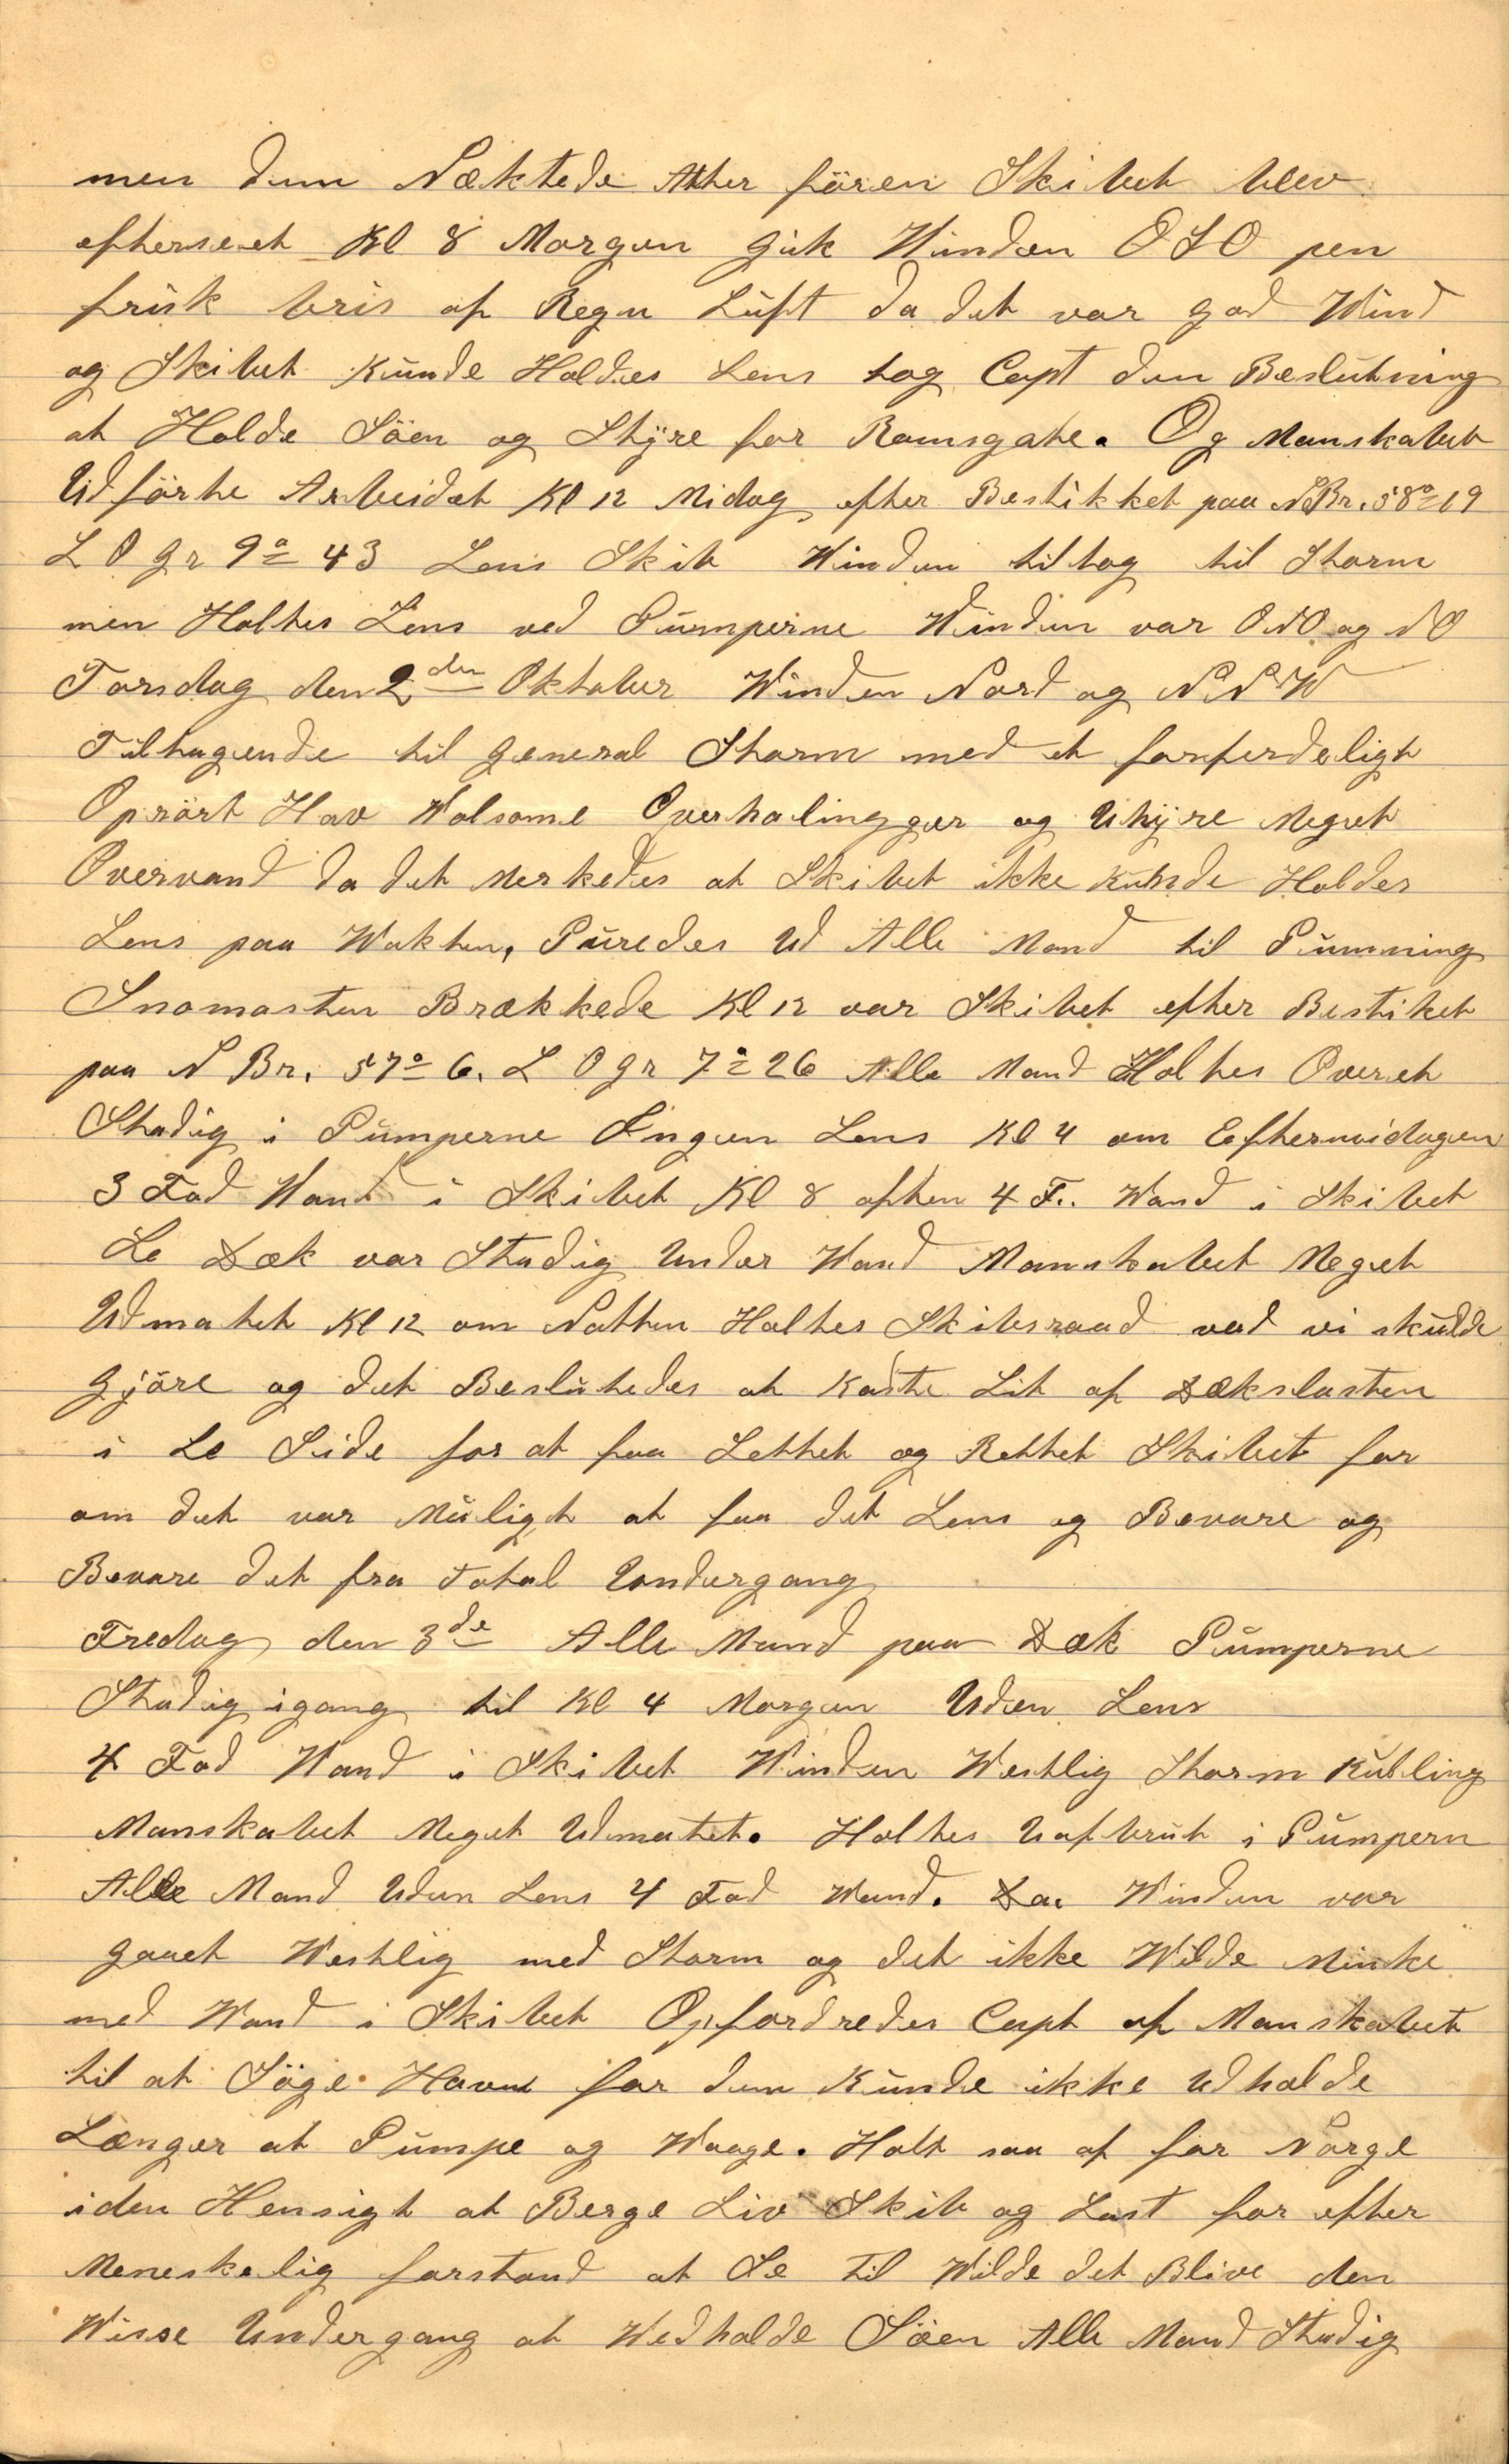 men dem Næktede Atter fören Skibet blev
efterseet Kl 8 Morgen gik Winden OSO pen
frisk bris af Regn Luft da det var god Wind
og Skibet Kunde Holdes Lens tog Capt den Beslutning
at Holde Söen og Styre for Ramsgate. Og Manskabet
Udförte Arbeidet Kl 12 Midag efter Bestikket paa N Br. 58° 19
L O gr 9° 43 Lens Skib Winden tiltog til Storm
men Holtes Lens ved Pumperne Winden var ONO og NO
Torsdag den 2den Oktober Winden Nord og N.N.W
Tiltagende til General Storm med et forferdeligt
Oprört Hav Wolsome Overhalingger og Uhyre Meget
Overvand da det Merkedes at Skibet ikke Kunde Holdes
Lens paa Wakten, Puredes Ud Alle Mand til Pumning
Snomasten Brækkede Kl 12 var Skibet efter Bestiket
paa N Br. 57° 6. L O gr 7° 26 Alle Mand Holtes Overet
Stadig i Pumperne Ingen Lens Kl 4 om Eftermidagen
3 Fod Wand i Skibet Kl 8 aften 4 F.. Wand i Skibet
Le Dæk var Stadig Under Wand Manskabet Meget
Udmatet Kl 12 om Natten Holtes Skibsraad vad vi skulde
gjöre og det Beslutedes at Kaste Lit af Dækslasten
i Le Side for at faa Lettet og Rettet Skibet for
om det var Muligt at faa det Lens og Bevare og
Bevare det fra Total Undergang
Fredag den 3de Alle Mand paa Dæk Pumperne
Stadig igang til Kl 4 Morgen Uden Lens
4 Fod Wand i Skibet Winden Westlig Storm Kubling
Manskabet Meget Udmatet. Holtes Uafbrut i Pumpern
Alle Mand Uden Lens 4 Fod Wand. Da. Winden var
gaaet Westlig med Storm og det ikke Wilde Minke
med Wand i Skibet Opfordredes Capt af Manskabet
til at Söge Havn for dem Kunde ikke Udholde
Længer at Pumpe og Waage. Holt saa af for Norge
iden Hensigt at Berge Liv Skib og Last for efter
Meneskelig forstand at Se til Wilde det Blive den
Wisse Undergang at Wedholde Söen Alle Mand Stadig